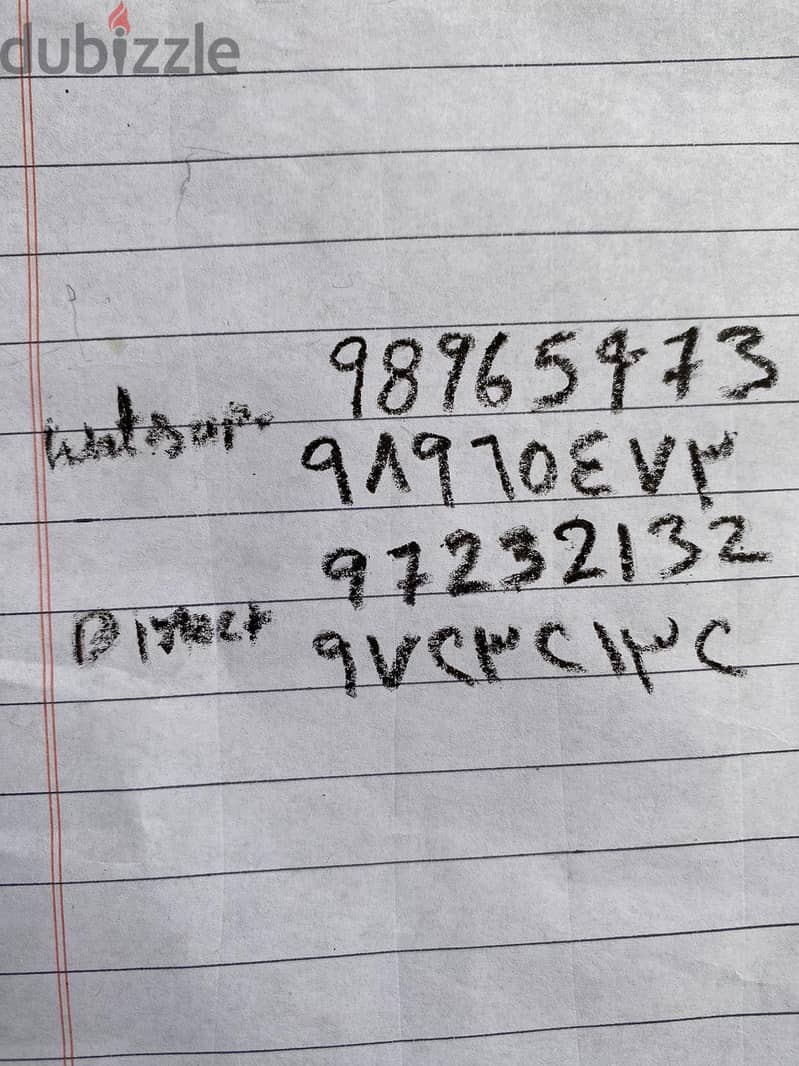 dubizzle
98965473
Watsap ٩٨٩٦٥٤٧٣
97232132
Direct ٩٧٢٣٢١٣٢